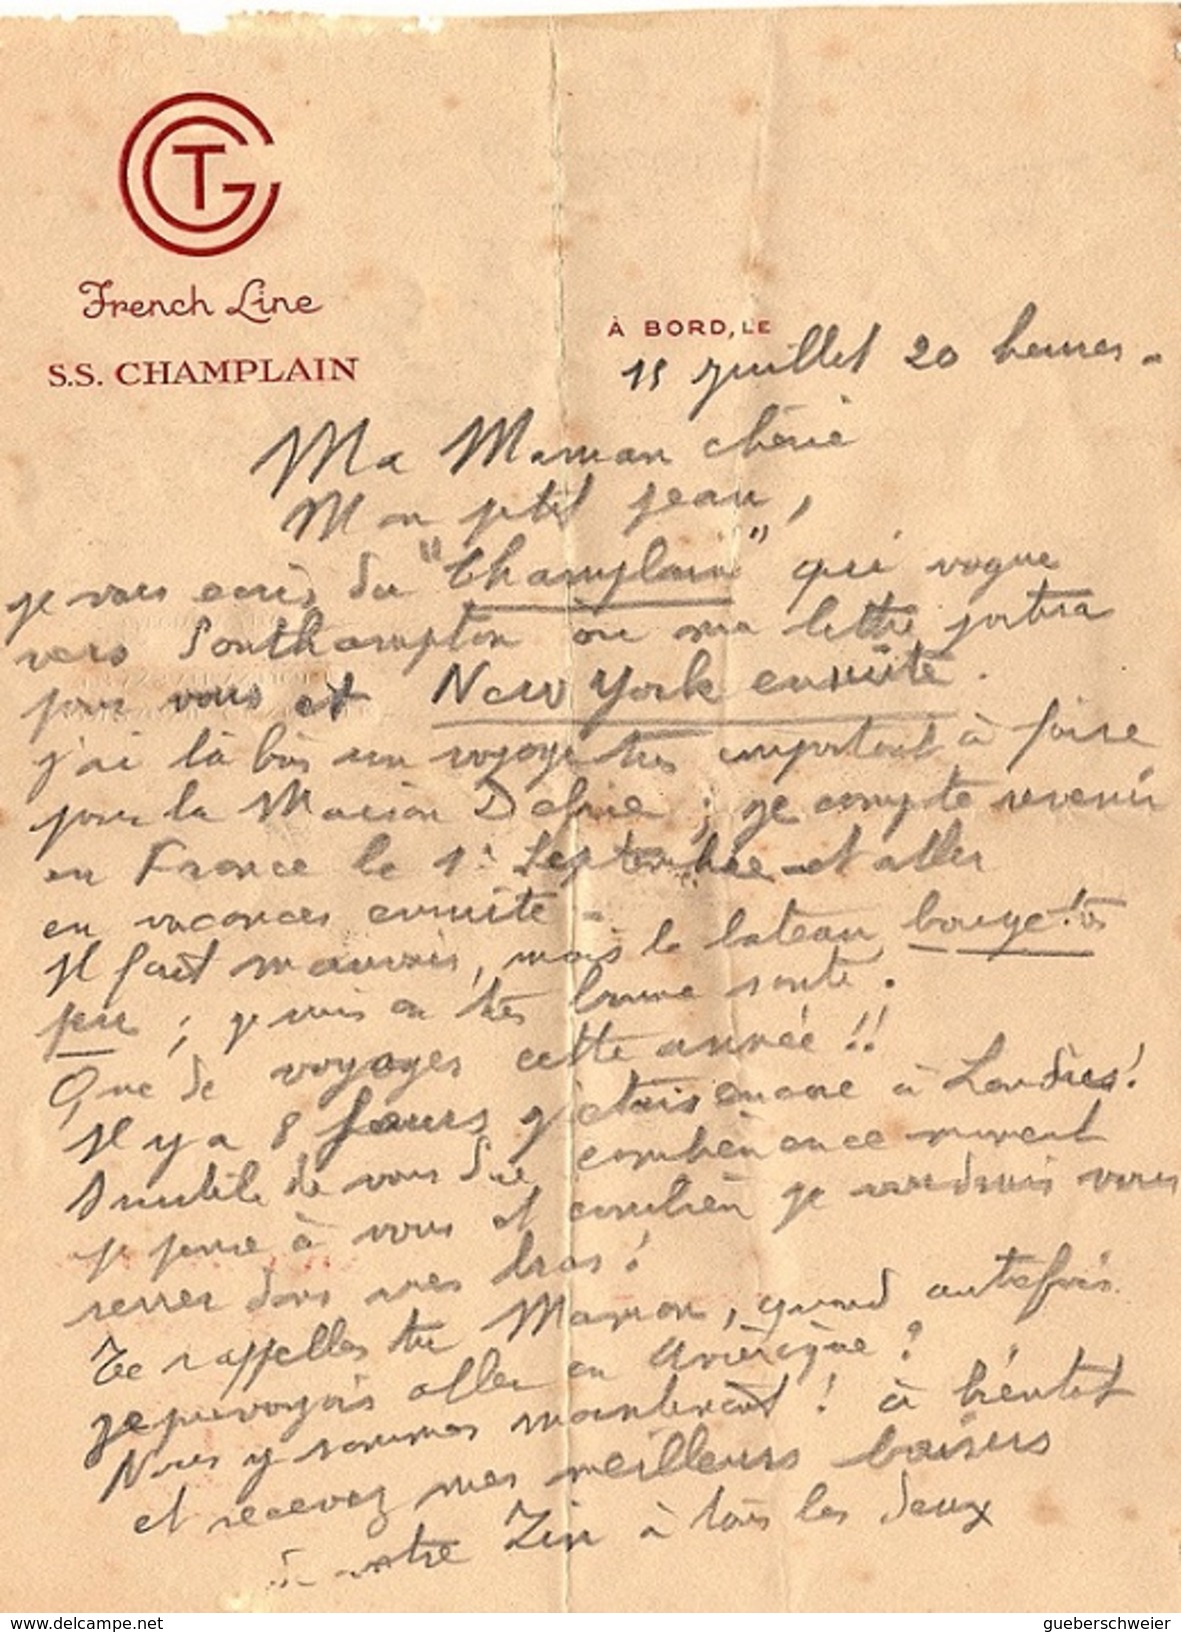 CGT
French Line
S.S. CHAMPLAIN
À BORD, LE
15 juillet 20 heures -
Ma Maman chérie
Mon ptit Jean,
je vous écris du "Champlain" qui vogue
vers Southampton où ma lettre partira
pour vous et New York ensuite.
j'ai là bas un voyage très important à faire
pour la Maison ; je compte revenir
en France le 1er Septembre et aller
en vacances ensuite -
Il fait mauvais, mais le bateau bouge très
peu ; je suis en très bonne santé.
Que de voyages cette année !!
Il y a 8 jours j'étais encore à Londres !
Inutile de vous dire combien en ce moment
je pense à vous et combien je voudrais vous
serrer dans mes bras !
Te rappelles tu Maman, quand autrefois
je prévoyais aller en Amérique ?
Nous y sommes maintenant ! à bientôt
et recevez mes meilleurs baisers
de votre à tous les deux
delcampe.net
gueberschweier